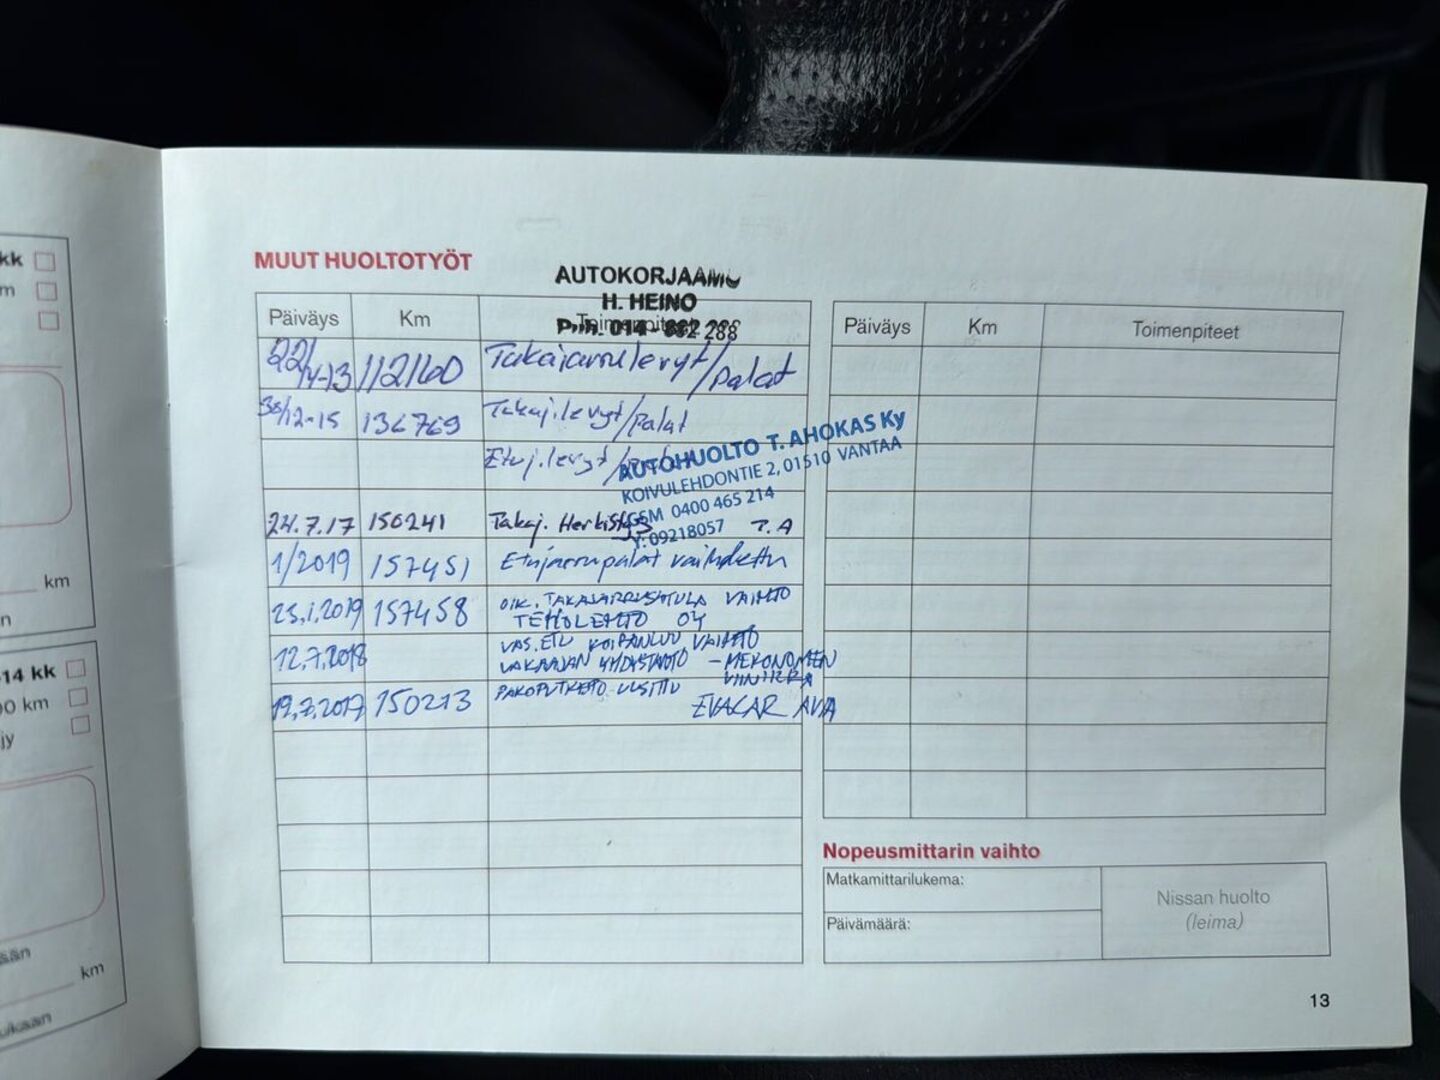 kk
m
km
n
14 kk
00 km
jy
km
MUUT HUOLTOTYÖT
AUTOKORJAAMO
H. HEINO
Puh. 014 - 882 288
Päiväys Km Toimenpiteet
22/4-13 112160 Takajarrulevyt/palat
30/12-15 136769 Takaj.levyt/palat
Etuj.levyt/
AUTOHUOLTO T. AHOKAS Ky
KOIVULEHDONTIE 2, 01510 VANTAA
GSM 0400 465 214
Y: 09218057
24.7.17 150241 Takaj. Herkistys T.A
1/2019 157451 Etujarrupalat vaihdettu
25.1.2019 157458 OIK. TAKAJARRUSATULA VAIHTO
TEHOLEHTO OY
12.7.2018 VAS. ETU KOIRANLUU VAIHTO
VAKAAJAN YHDYSTANKO - MEKONOMEN
VIINIKKA
19.7.2017 150213 PAKOPUTKISTO UUSITTU
EVACAR AVIA
Päiväys Km Toimenpiteet
Nopeusmittarin vaihto
Matkamittarilukema:
Päivämäärä:
Nissan huolto
(leima)
13